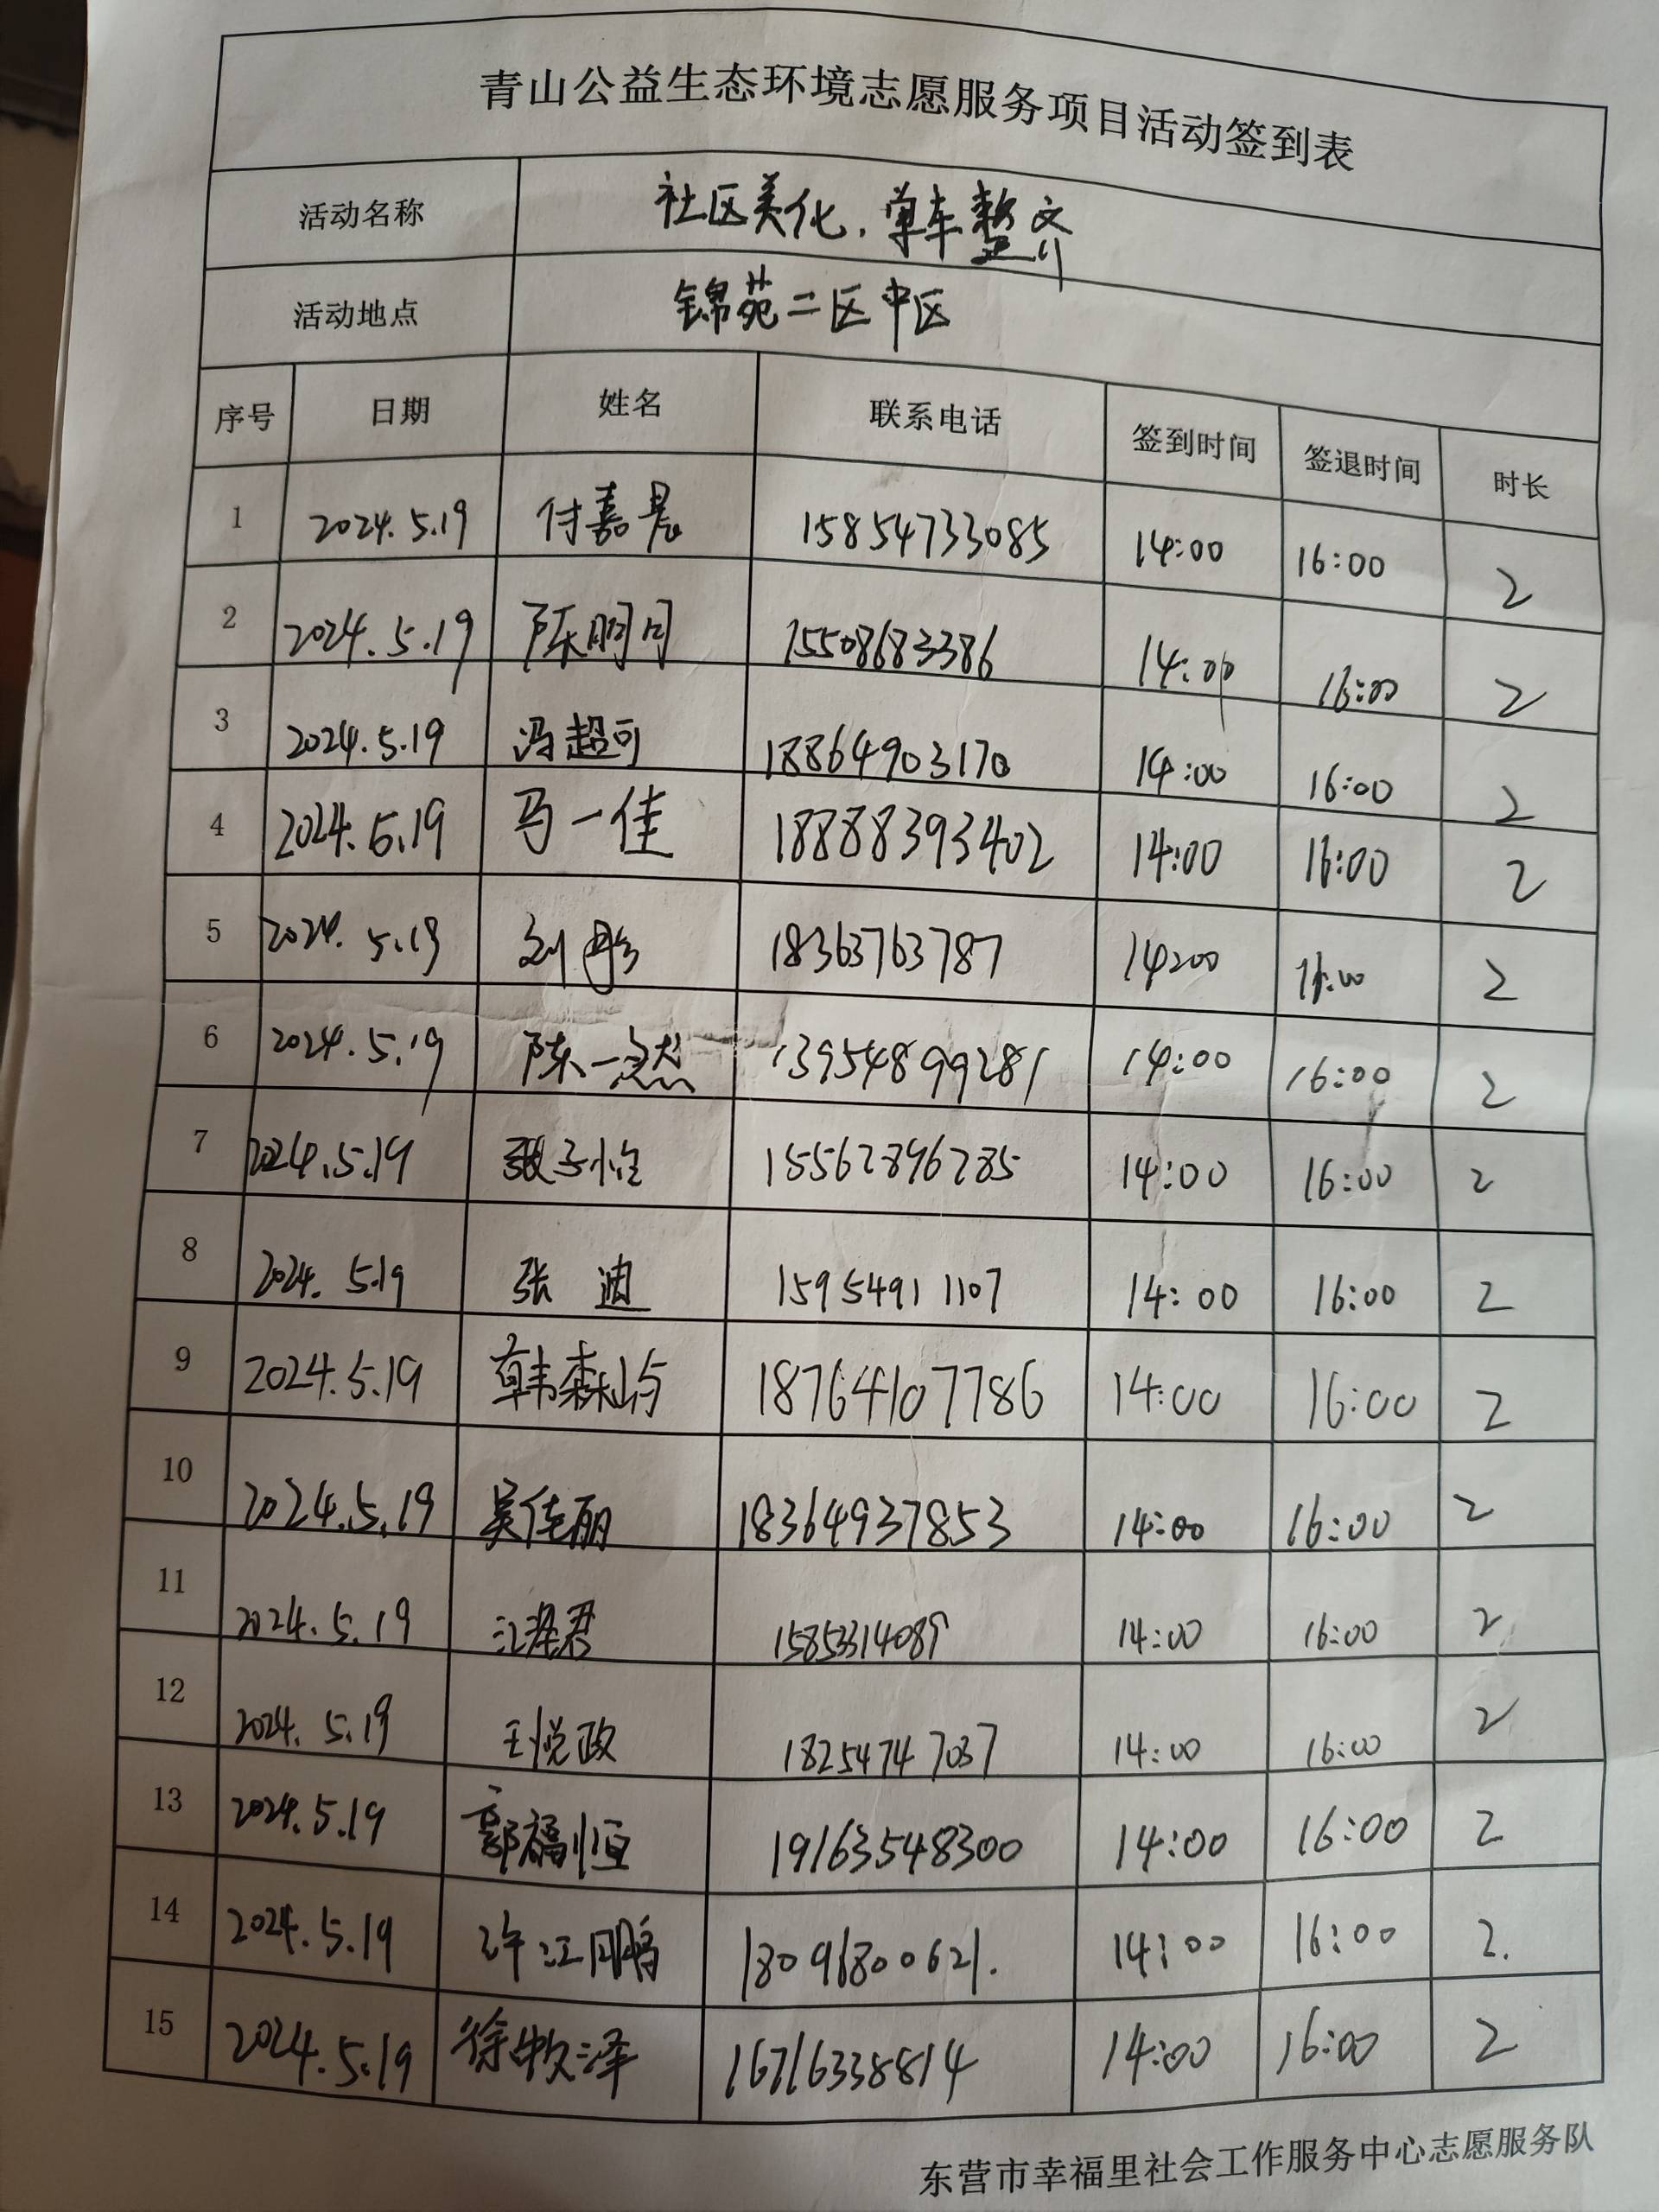 青山公益生态环境志愿服务项目活动签到表
活动名称 社区美化,单车整齐
活动地点 锦苑二区中区
序号 日期 姓名 联系电话 签到时间 签退时间 时长
1 2024.5.19 付嘉晨 15854733085 14:00 16:00 2
2 2024.5.19 陈明月 15508683386 14:00 16:00 2
3 2024.5.19 冯超可 18864903170 14:00 16:00 2
4 2024.5.19 马一佳 18888393402 14:00 16:00 2
5 2024.5.19 刘彤 18363763787 14:00 16:00 2
6 2024.5.19 陈一然 13954899281 14:00 16:00 2
7 2024.5.19 张子怡 15562896285 14:00 16:00 2
8 2024.5.19 张迪 15954911107 14:00 16:00 2
9 2024.5.19 韩森屿 18764107786 14:00 16:00 2
10 2024.5.19 吴佳丽 18364937853 14:00 16:00 2
11 2024.5.19 江泽君 14:00 16:00 2
12 2024.5.19 王悦政 18254747037 14:00 16:00 2
13 2024.5.19 郭福恒 19163548300 14:00 16:00 2
14 2024.5.19 许江鹏 18096800621. 14:00 16:00 2.
15 2024.5.19 徐牧泽 16716338814 14:00 16:00 2
东营市幸福里社会工作服务中心志愿服务队